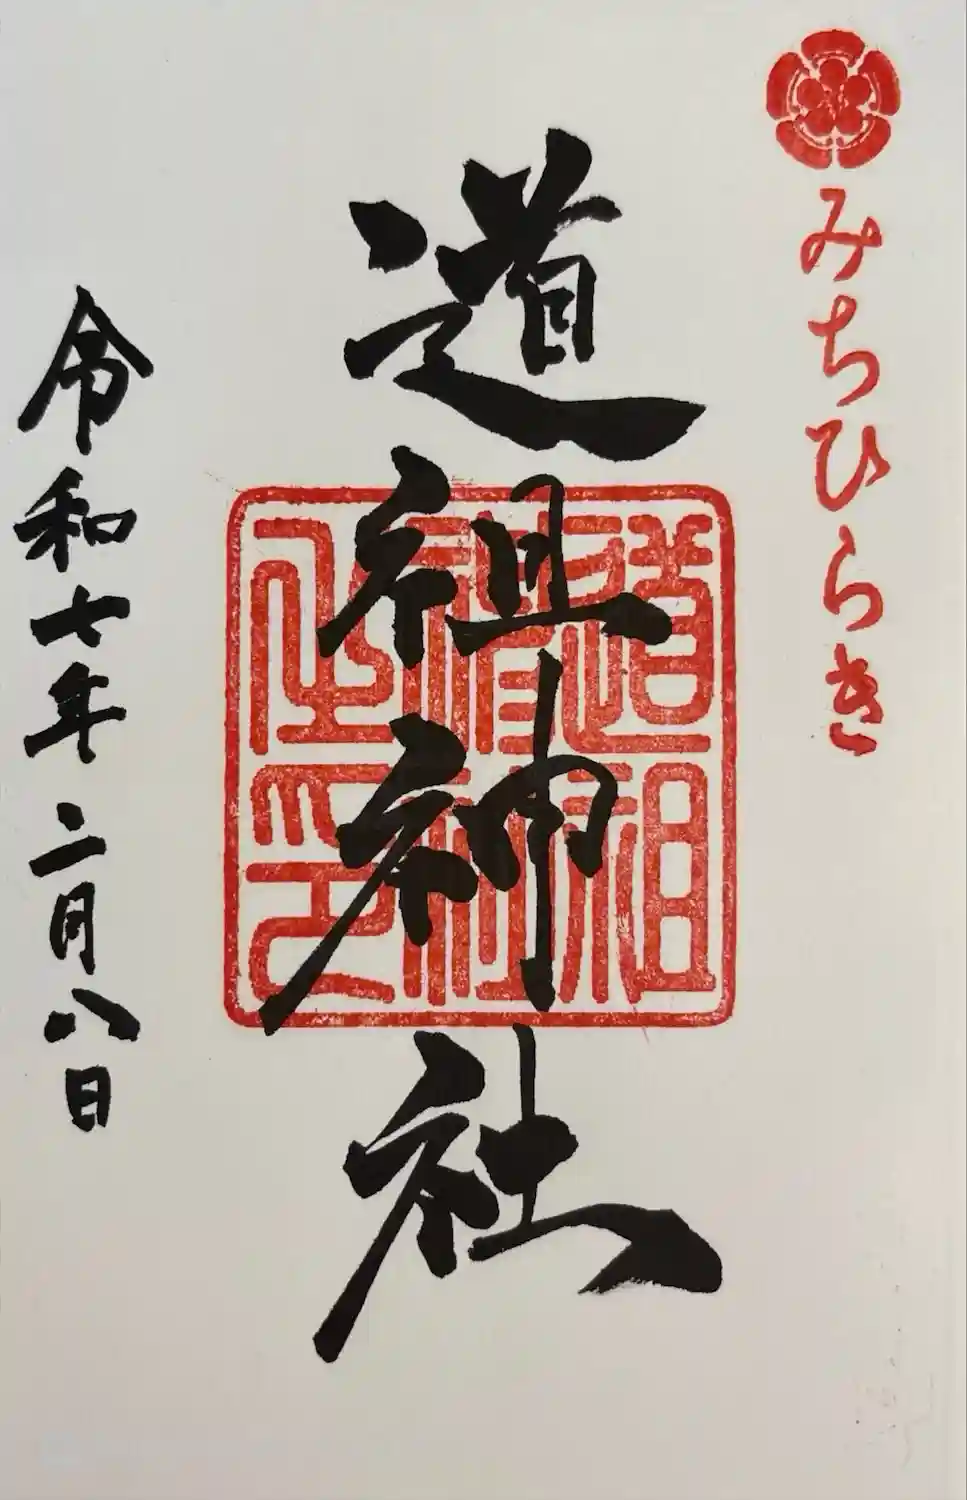 みちひらき
道祖神社
道祖神社
令和七年二月八日